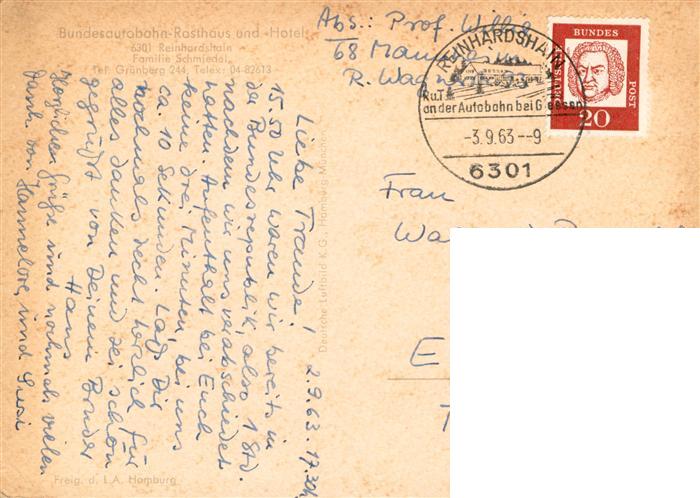 Bundesautobahn-Rasthaus und -Hotel
6301 Reinhardshain
Familie Schmiedel,
Tel. Grünberg 244, Telex: 04-82613
Abs.: Prof Willi
68 Mann
R. Wagn
REINHARDSHAIN
R.u.T
an der Autobahn bei Giessen
-3.9.63--9
6301
DEUTSCHE
BUNDES
POST
20
Frau
Wa
E
T
2.9.63. 17.30h
Liebe Traude!
15.50 Uhr waren wir bereits in
der Bundesrepublik, also 1 Std.
nachdem wir uns verabschiedet
hatten. Aufenthalt bei Euch
keine drei Minuten, bei uns
ca. 10 Sekunden. Laß Dir
nochmals recht herzlich für
alles danken und sei schön
gegrüßt von Deinem Bruder
Hans
Herzlichen Grüße und nochmals vielen
Dank von Hannelore und Susi
Deutsche Luftbild K.G., Hamburg
Freig. d. L.A. Hamburg